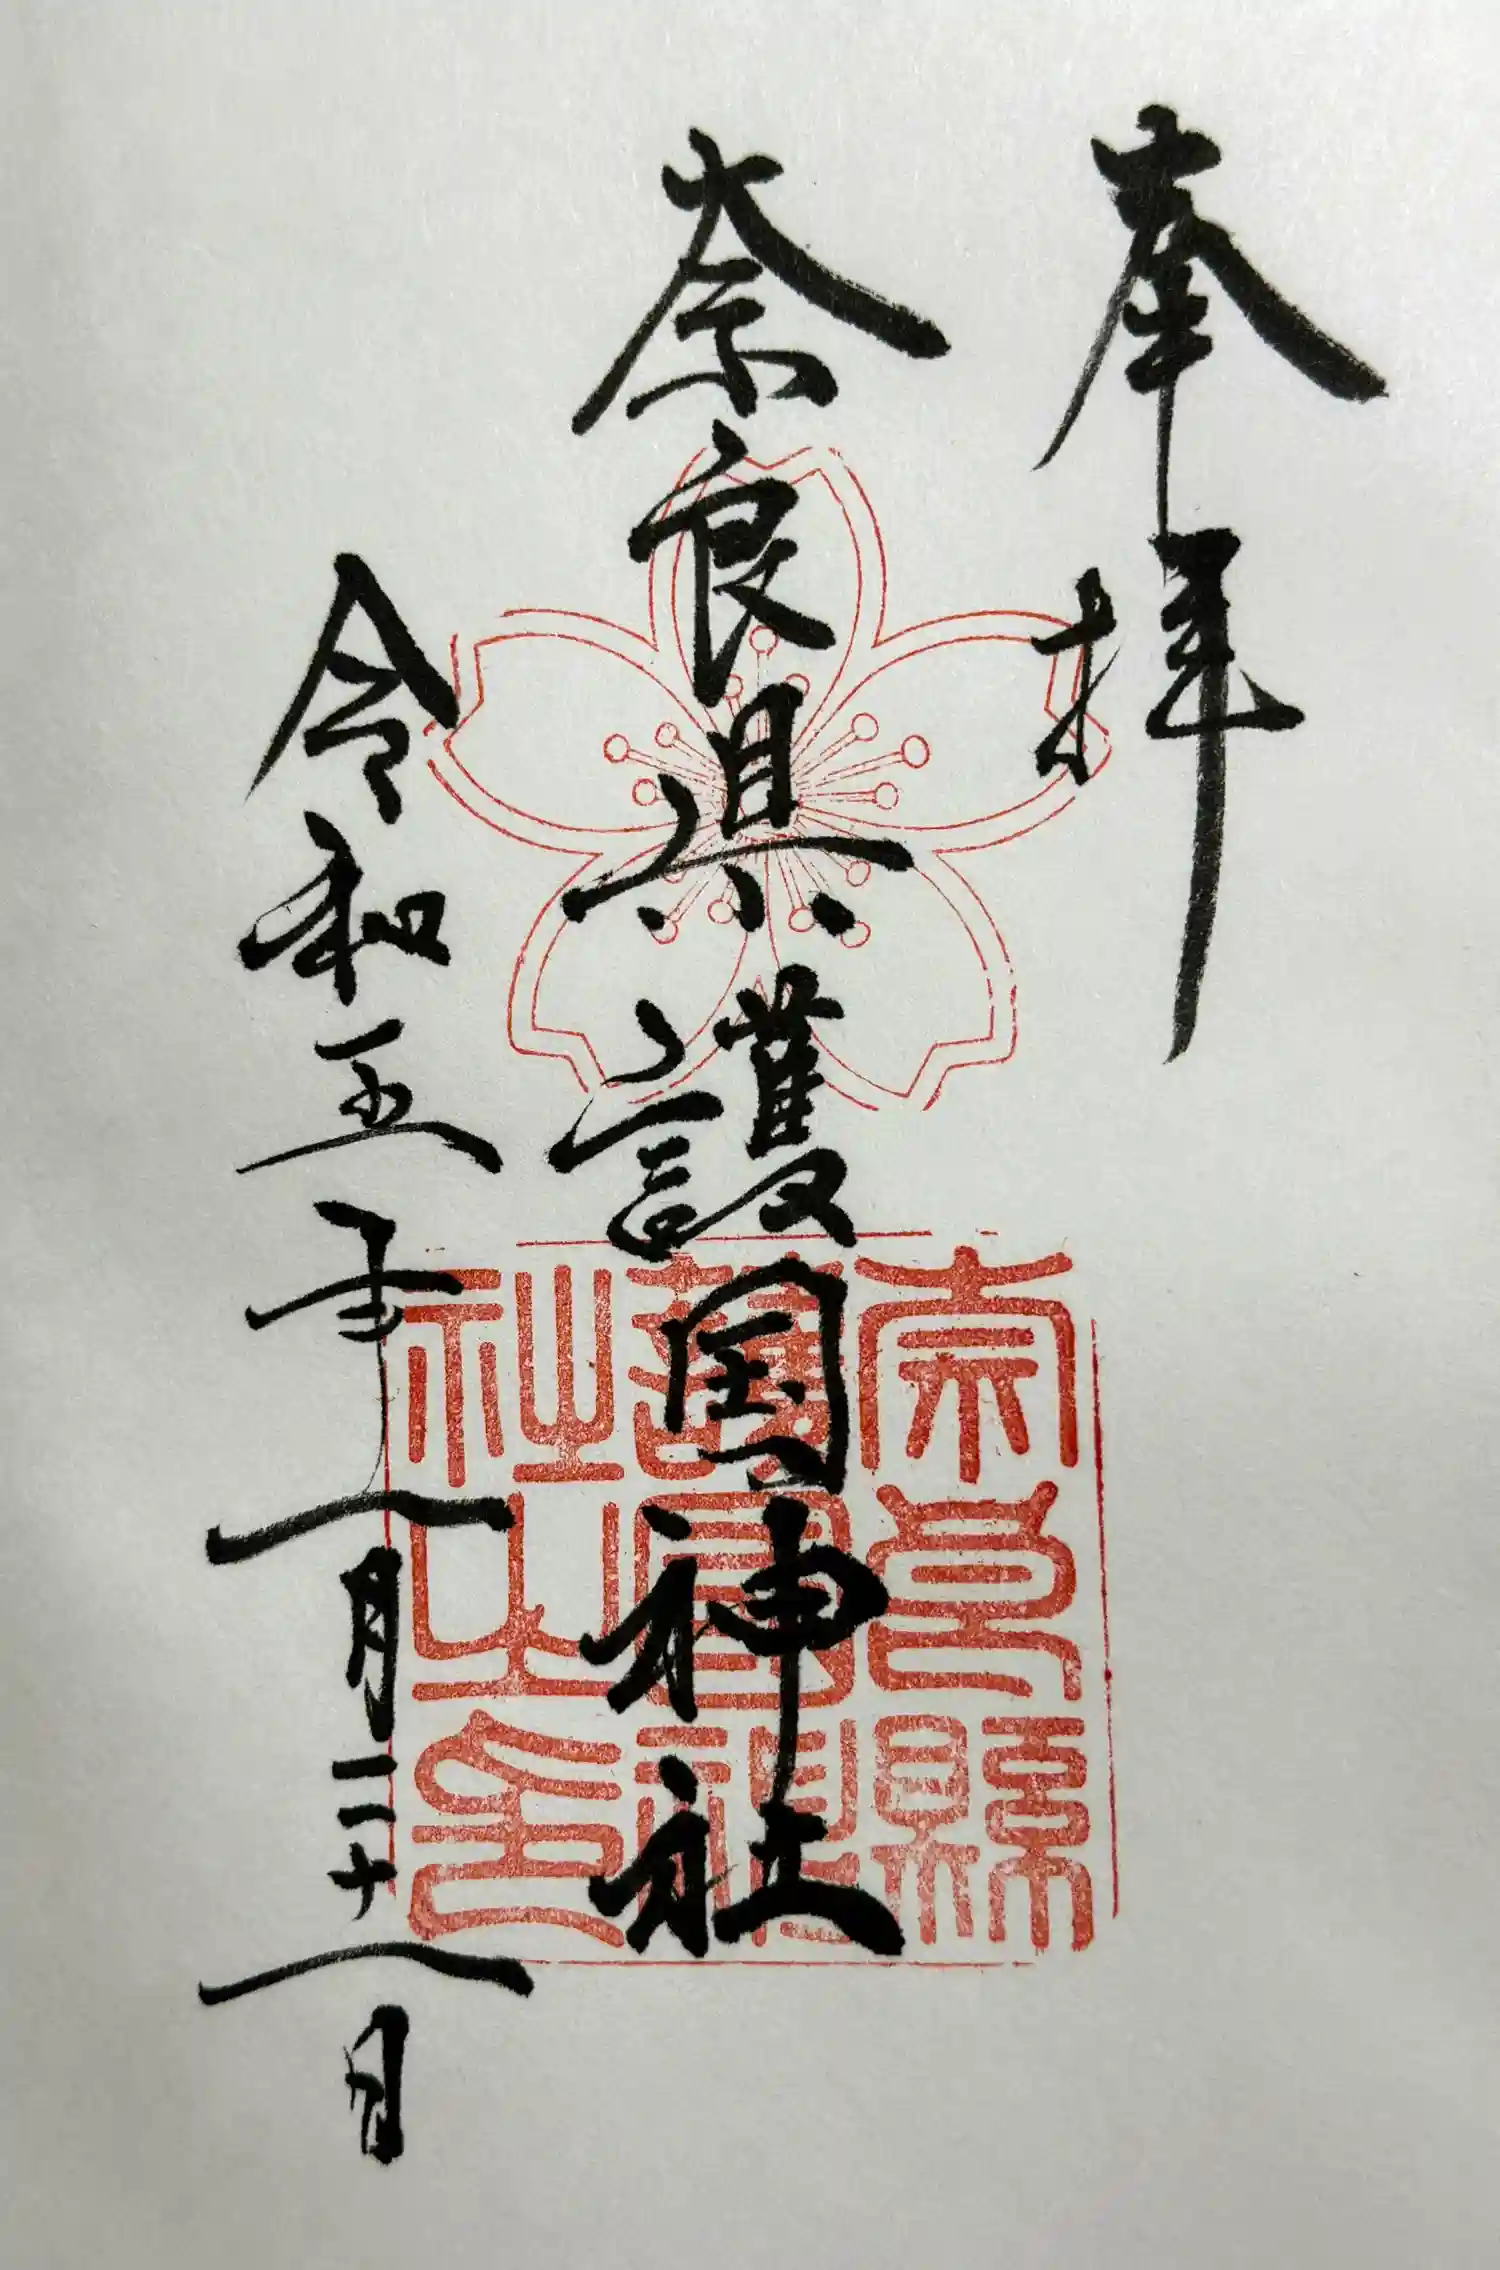 奉拝
奈良県護国神社
奈良縣護國神社之印
令和五年一月二十一日